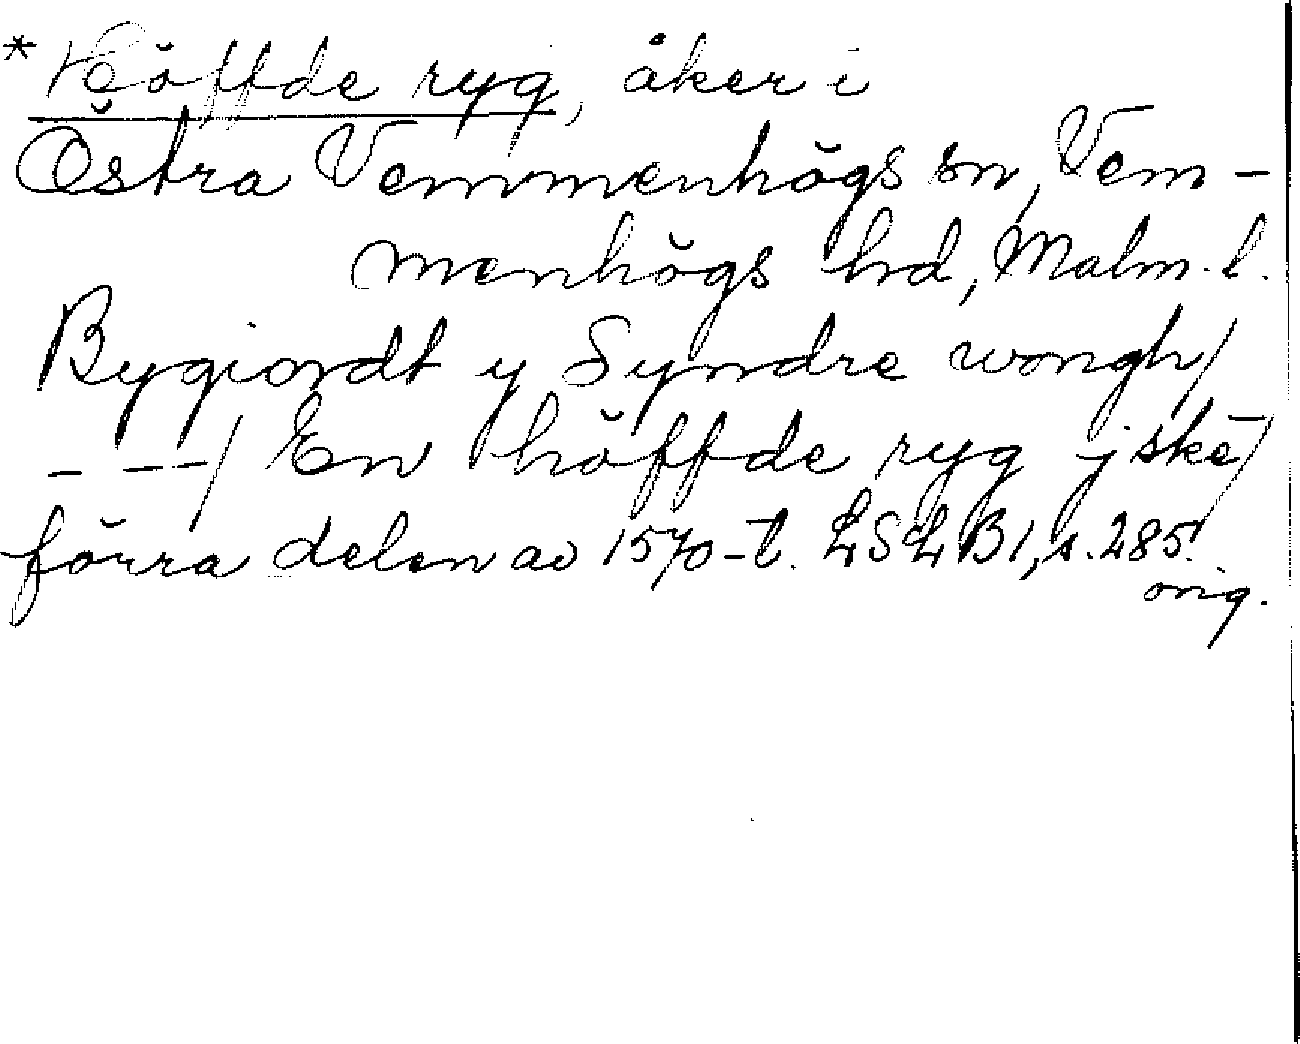 * Höffde ryg, åker i
Östra Vemmenhögs sn, Vem-
menhögs hd, Malm. l.
Bygiordt y Syndre wongh/
- - - / En höffde ryg j skē/
förra delen av 1570-t. LSLB1, s. 285.
orig.